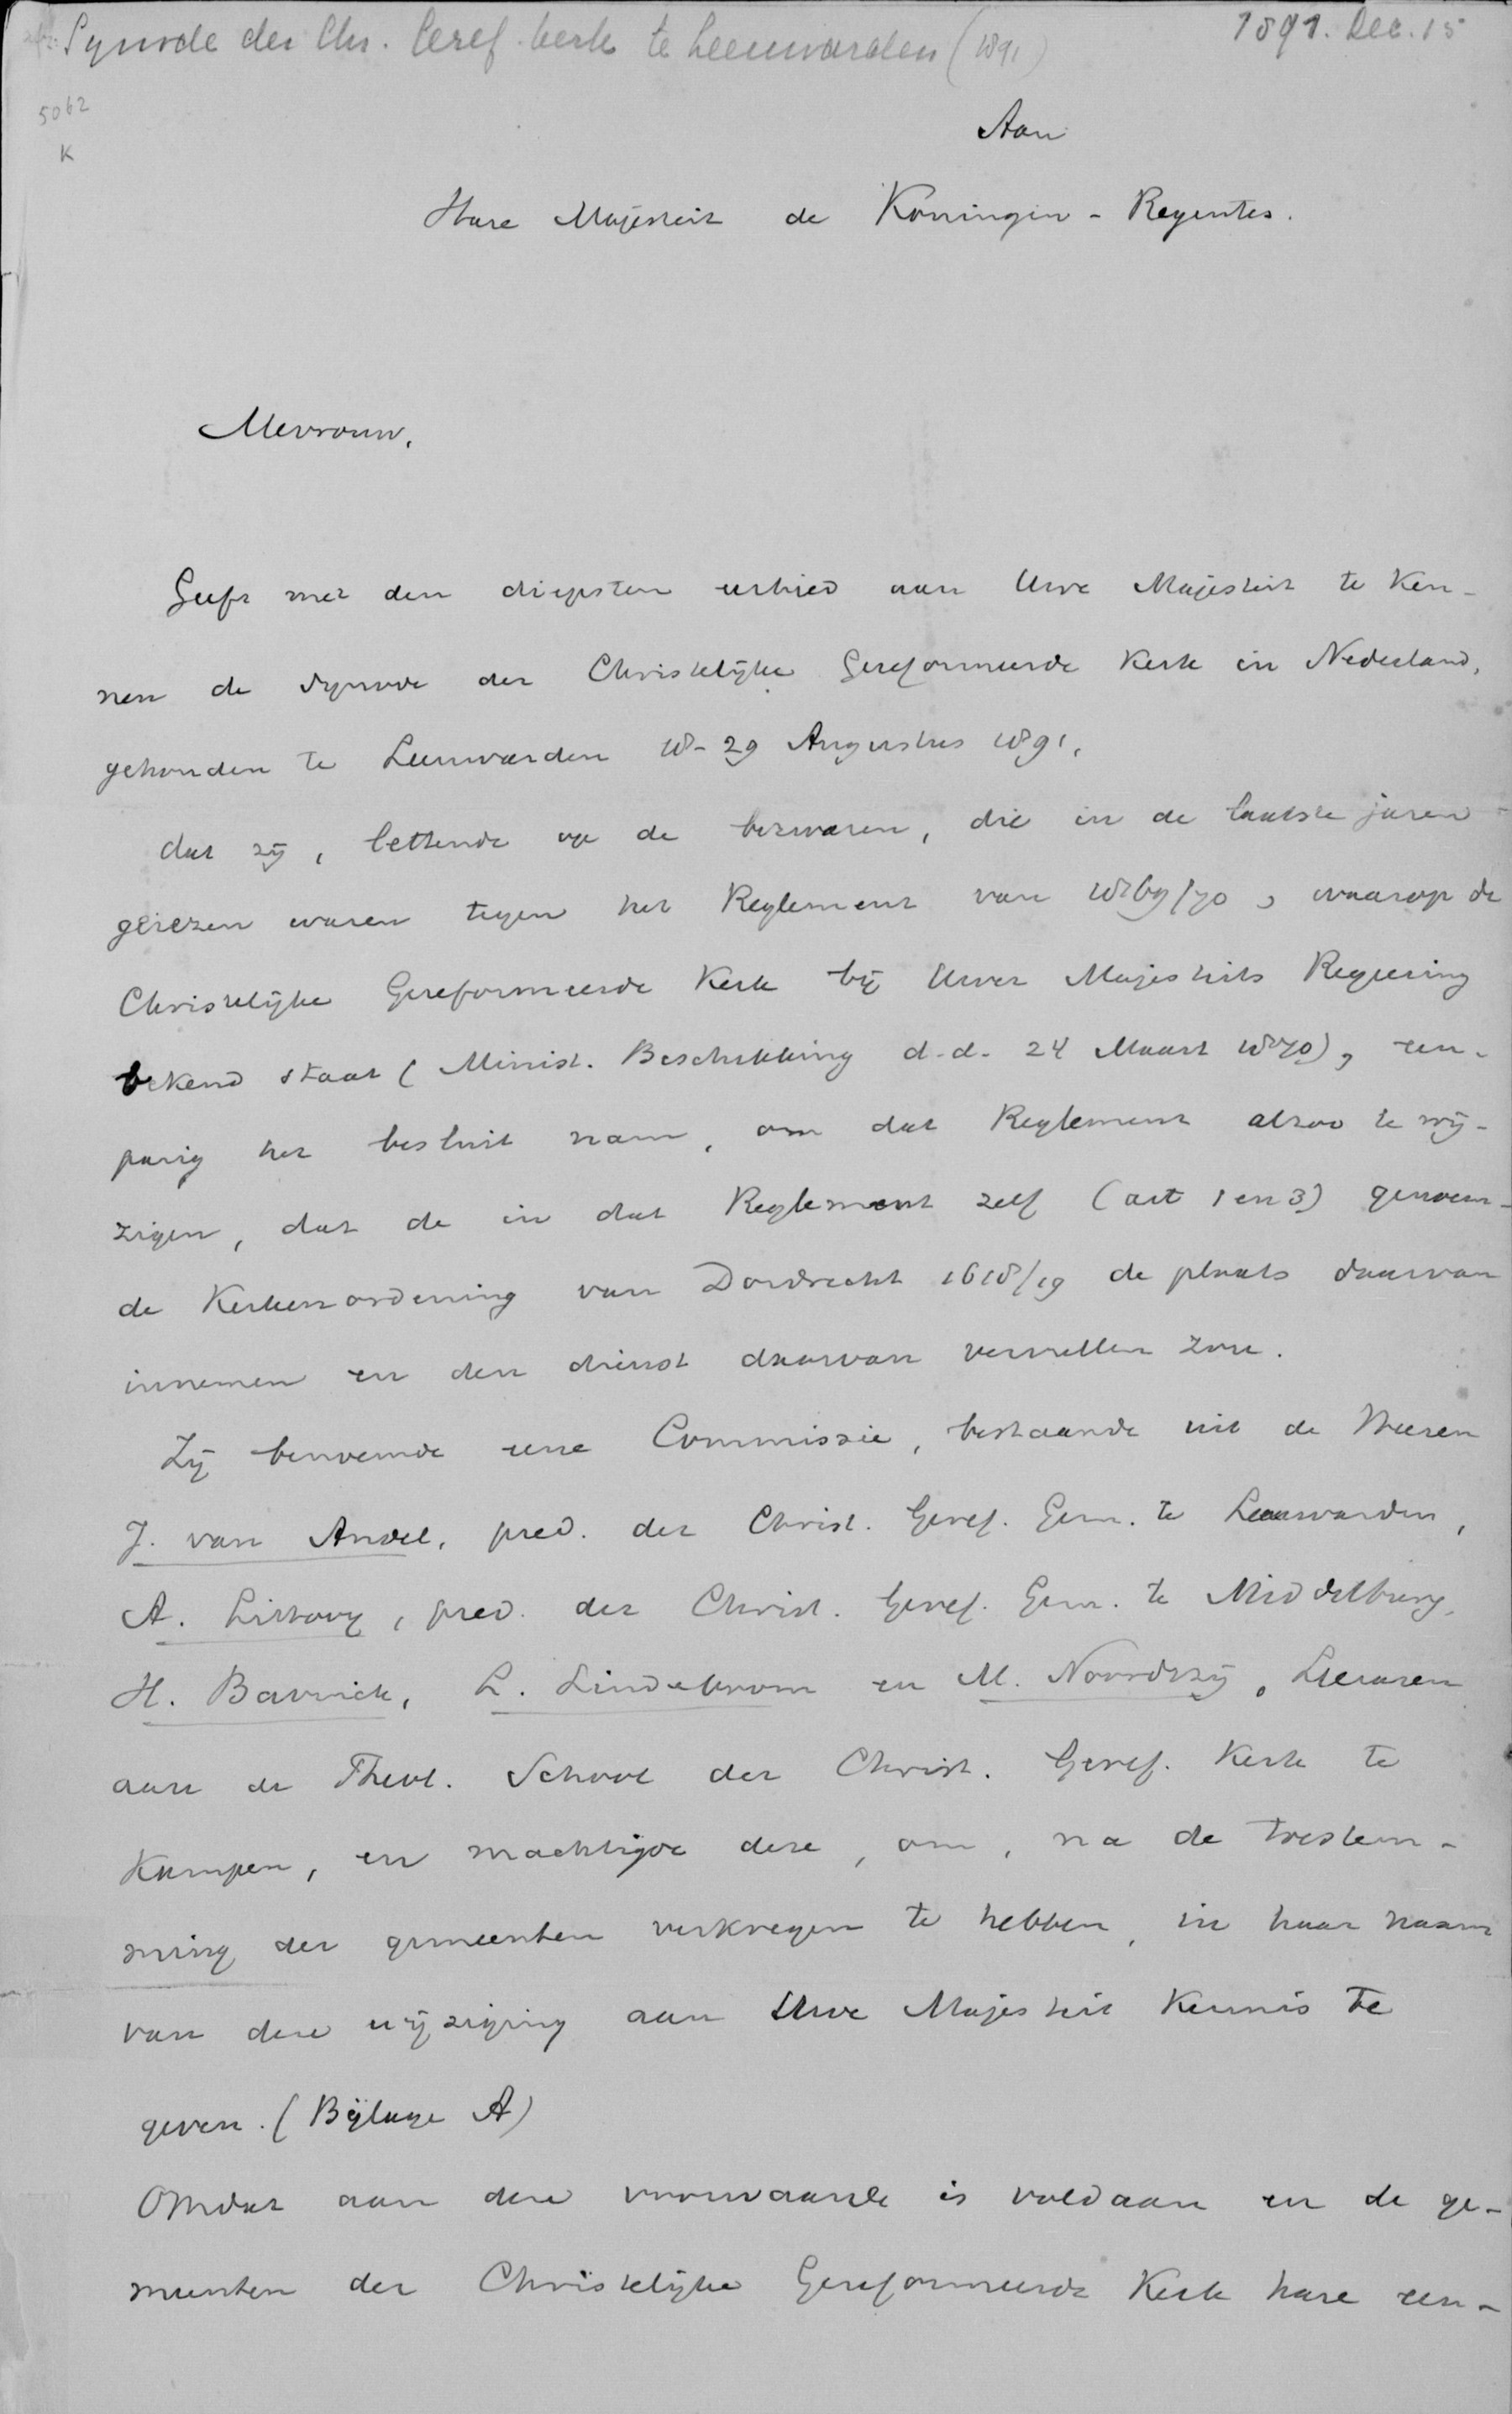 Synode der Chr. Geref. kerk te Leeuwarden (1891)
1891. Dec. 15
5062
K
Aan
Hare Majesteit de Koningin-Regentes.
Mevrouw,
Geeft met den diepsten eerbied aan Uwe Majesteit te ken-
nen de Synode der Christelijke Gereformeerde Kerk in Nederland,
gehouden te Leeuwarden 18-29 Augustus 1891,
dat zij, lettende op de bezwaren, die in de laatste jaren
gerezen waren tegen het Reglement van 1869/70, waarop de
Christelijke Gereformeerde Kerk bij Uwer Majesteits Regeering
bekend staat (Minist. Beschikking d.d. 24 Maart 1870), een-
parig het besluit nam, om dat Reglement alzoo te wij-
zigen, dat de in dat Reglement zelf (art 1 en 3) genoem-
de Kerkenordening van Dordrecht 1618/19 de plaats daarvan
innemen en den dienst daarvan vervullen zou.
Zij benoemde eene Commissie, bestaande uit de Heeren
J. van Andel, pred. der Christ. Geref. Gem. te Leeuwarden,
A. Littooy, pred. der Christ. Geref. Gem. te Middelburg,
H. Bavinck, L. Lindeboom en M. Noordtzij, Leeraren
aan de Theol. School der Christ. Geref. Kerk te
Kampen, en machtigde deze, om, na de toestem-
ming der gemeenten verkregen te hebben, in haar naam
van deze wijziging aan Uwe Majesteit kennis te
geven. (Bijlage A)
Omdat aan deze voorwaarde is voldaan en de ge-
meenten der Christelijke Gereformeerde Kerk hare een-